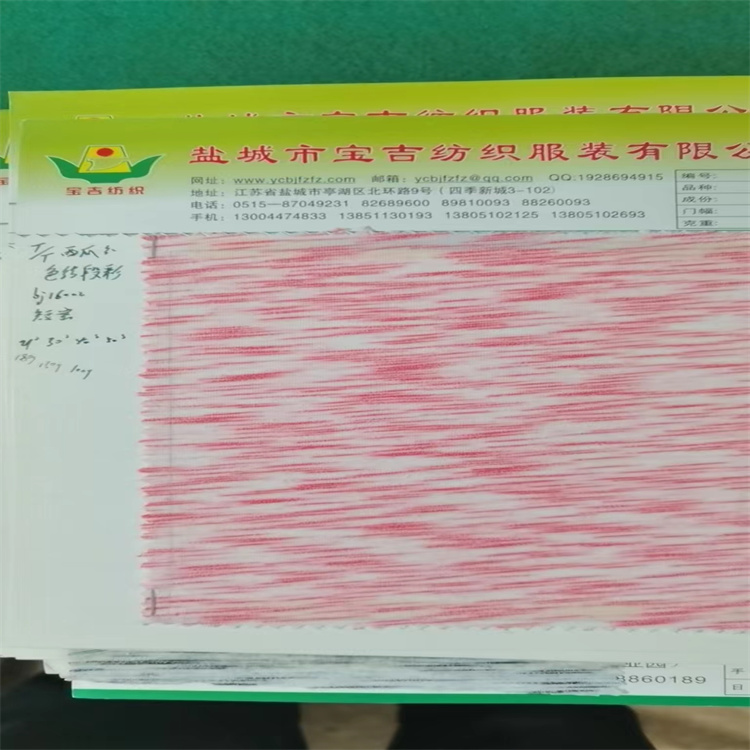 盐城市宝吉纺织服装有限公
宝吉纺织
网址：www.ycbjfzfz.com 邮箱：ycbjfzfz@qq.com QQ:1928694915
地址：江苏省盐城市亭湖区北环路9号（四季新城3-102）
电话：0515—87049231 82689600 89810093 88260093
手机：13004474833 13851130193 13805102125 13805102693
编号：
品种：
成份：
门幅：
克重：
T/T 西瓜红
色纺段彩
bj16002
短茎
8860189
手
日